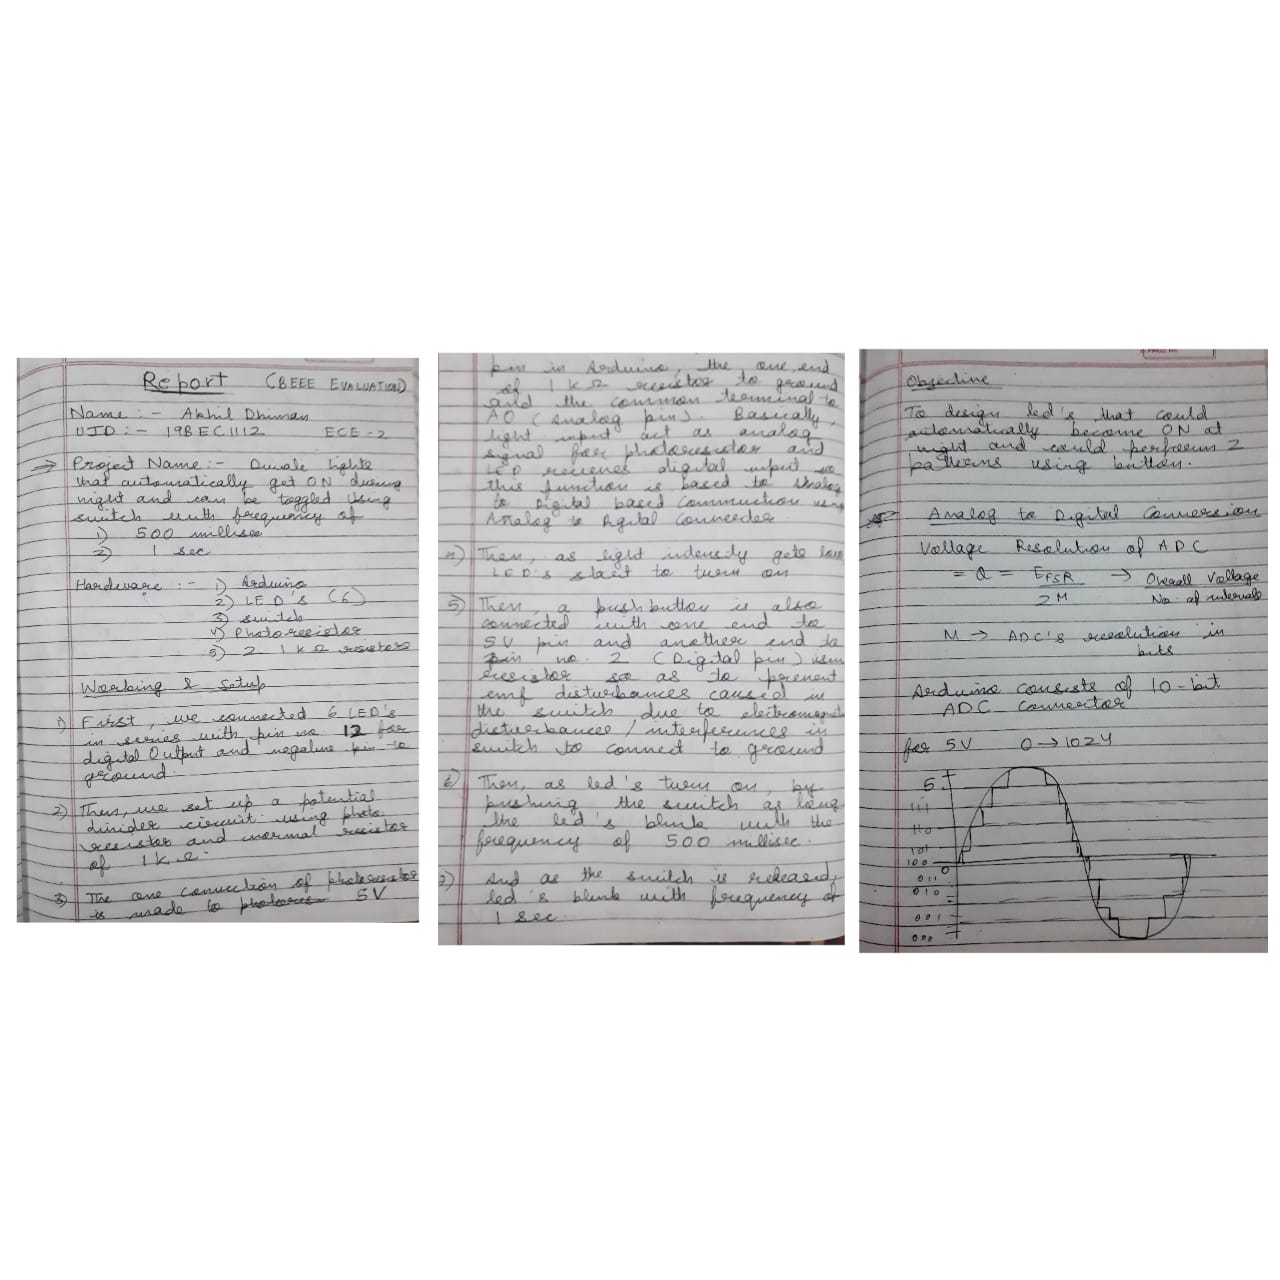 Report (BEEE EVALUATION)
Name :- Akhil Dhiman
UID :- 19BEC1112 ECE-2
⇒ Project Name :- Diwale Lights
that automatically get ON during
night and can be toggled using
switch with frequency of
1) 500 millisec
2) 1 sec
Hardware :- 1) Arduino
2) LED's (6)
3) switch
4) Photoresistor
5) 2 1 kΩ resistors
Working & Setup
1) First, we connected 6 LED's
in series with pin no. 12 for
digital Output and negative pin to
ground.
2) Then, we set up a potential
divider circuit using photo
resistor and normal resistor
of 1 kΩ.
3) The one connection of photoresistor
is made to 5V
pin in Arduino, the one end
of 1 kΩ resistor to ground
and the common terminal to
A0 (analog pin). Basically,
light input act as analog
signal for photoresistor and
LED recieves digital input so
this function is based to Analog
to Digital based Commuction using
Analog to Digital Conveerter
4) Then, as light intensity gets low
LED's start to turn on
5) Then, a push button is also
connected with one end to
5V pin and another end to
pin no. 2 (Digital pin)
resistor so as to prevent
emf disturbances caused in
the switch due to electromagnet
disturbances / interferences in
switch to connect to ground
6) Then, as led's turn on, by
pushing the switch as long
the led's blink with the
frequency of 500 millisec.
7) And as the switch is released,
led's blink with frequency of
1 sec
Objective
To design led's that could
automatically become ON at
night and could perform 2
patterns using button.
Analog to Digital Conversion
Voltage Resolution of ADC
= Q = EFSR → Overall Voltage
2M No. of intervals
M → ADC's resolution in
bits
Arduino consists of 10-bit
ADC convertor
for 5V 0→1024
5
111
110
101
100
0
011
010
001
000